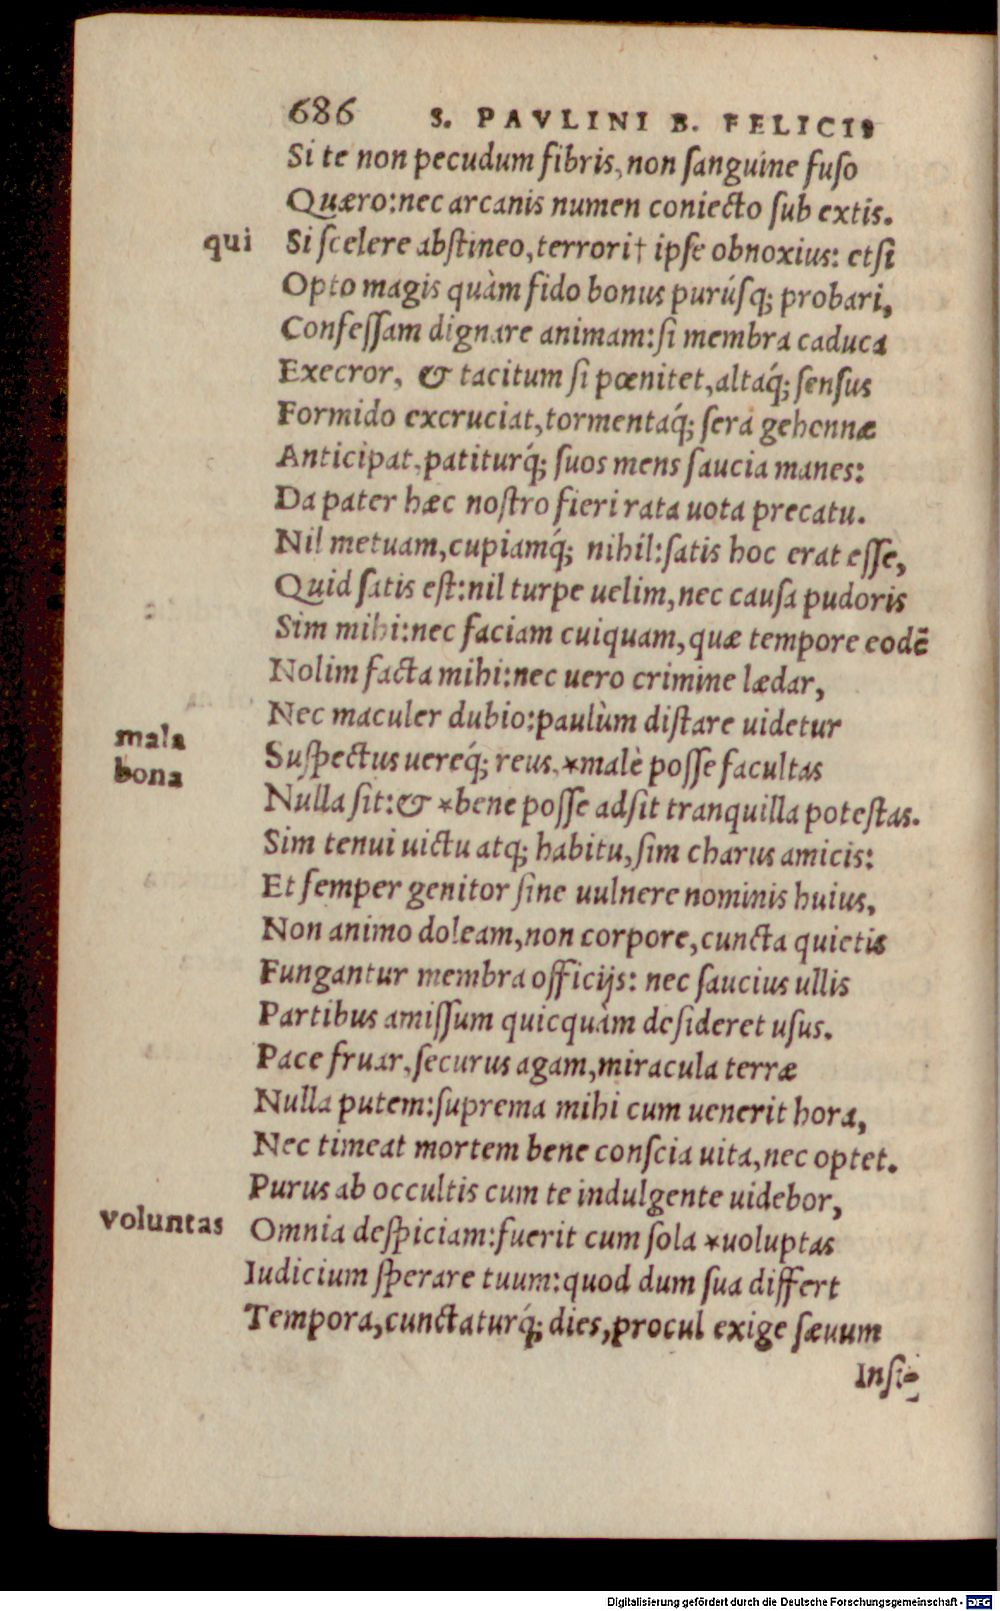 686 S. PAVLINI B. FELICIS
Si te non pecudum fibris, non ſanguine fuſo
Quæro: nec arcanis numen coniecto ſub extis.
qui Si ſcelere abſtineo, terrori† ipſe obnoxius: etſi
Opto magis quàm fido bonus purúſq; probari,
Confeſſam dignare animam: ſi membra caduca
Execror, & tacitum ſi pœnitet, altaq́; ſenſus
Formido excruciat, tormentaq́; ſera gehennæ
Anticipat, patiturq́; ſuos mens ſaucia manes:
Da pater hæc noſtro fieri rata uota precatu.
Nil metuam, cupiamq́; nihil: ſatis hoc erat eſſe,
Quid ſatis eſt: nil turpe uelim, nec cauſa pudoris
Sim mihi: nec faciam cuiquam, quæ tempore eodē
Nolim facta mihi: nec uero crimine lædar,
Nec maculer dubio: paulùm diſtare uidetur
mala Suſpectus uereq́; reus. *malè poſſe facultas
bona Nulla ſit: & *bene poſſe adſit tranquilla poteſtas.
Sim tenui uictu atq; habitu, ſim charus amicis:
Et ſemper genitor ſine uulnere nominis huius,
Non animo doleam, non corpore, cuncta quietis
Fungantur membra officijs: nec ſaucius ullis
Partibus amiſſum quicquàm deſideret uſus.
Pace fruar, ſecurus agam, miracula terræ
Nulla putem: ſuprema mihi cum uenerit hora,
Nec timeat mortem bene conſcia uita, nec optet.
Purus ab occultis cum te indulgente uidebor,
voluntas Omnia deſpiciam: fuerit cum ſola *uoluptas
Iudicium ſperare tuum: quod dum ſua differt
Tempora, cunctaturq́; dies, procul exige ſæuum
Inſi-
Digitalisierung gefördert durch die Deutsche Forschungsgemeinschaft - DFG